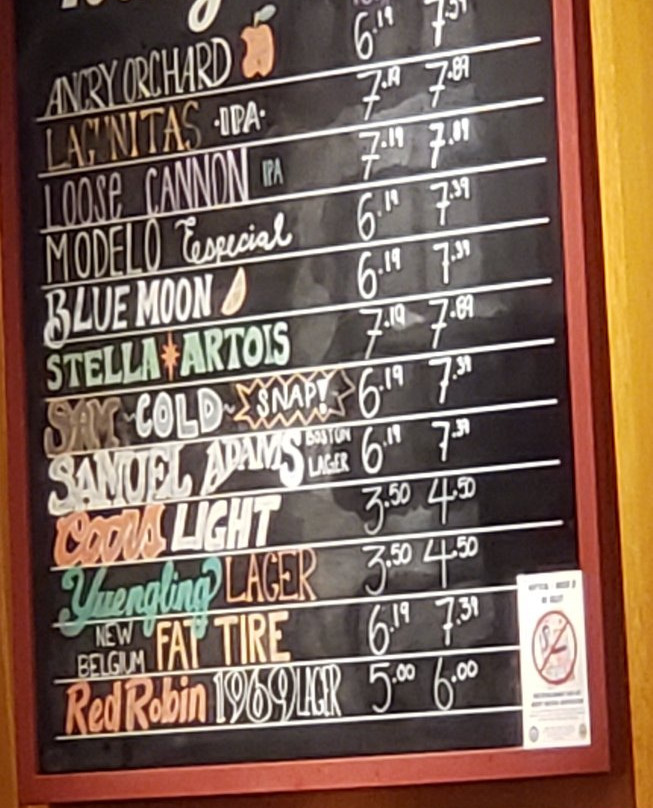 ANGRY ORCHARD 6.19 7.39
LAGUNITAS ·IPA· 7.19 7.89
LOOSE CANNON IPA 7.19 7.89
MODELO Especial 6.19 7.39
BLUE MOON 6.19 7.39
STELLA ARTOIS 7.19 7.89
SAM ~COLD~ SNAP! 6.19 7.39
SAMUEL ADAMS BOSTON LAGER 6.19 7.39
Coors LIGHT 3.50 4.50
Yuengling LAGER 3.50 4.50
NEW BELGIUM FAT TIRE 6.19 7.39
Red Robin 1969 LAGER 5.00 6.00